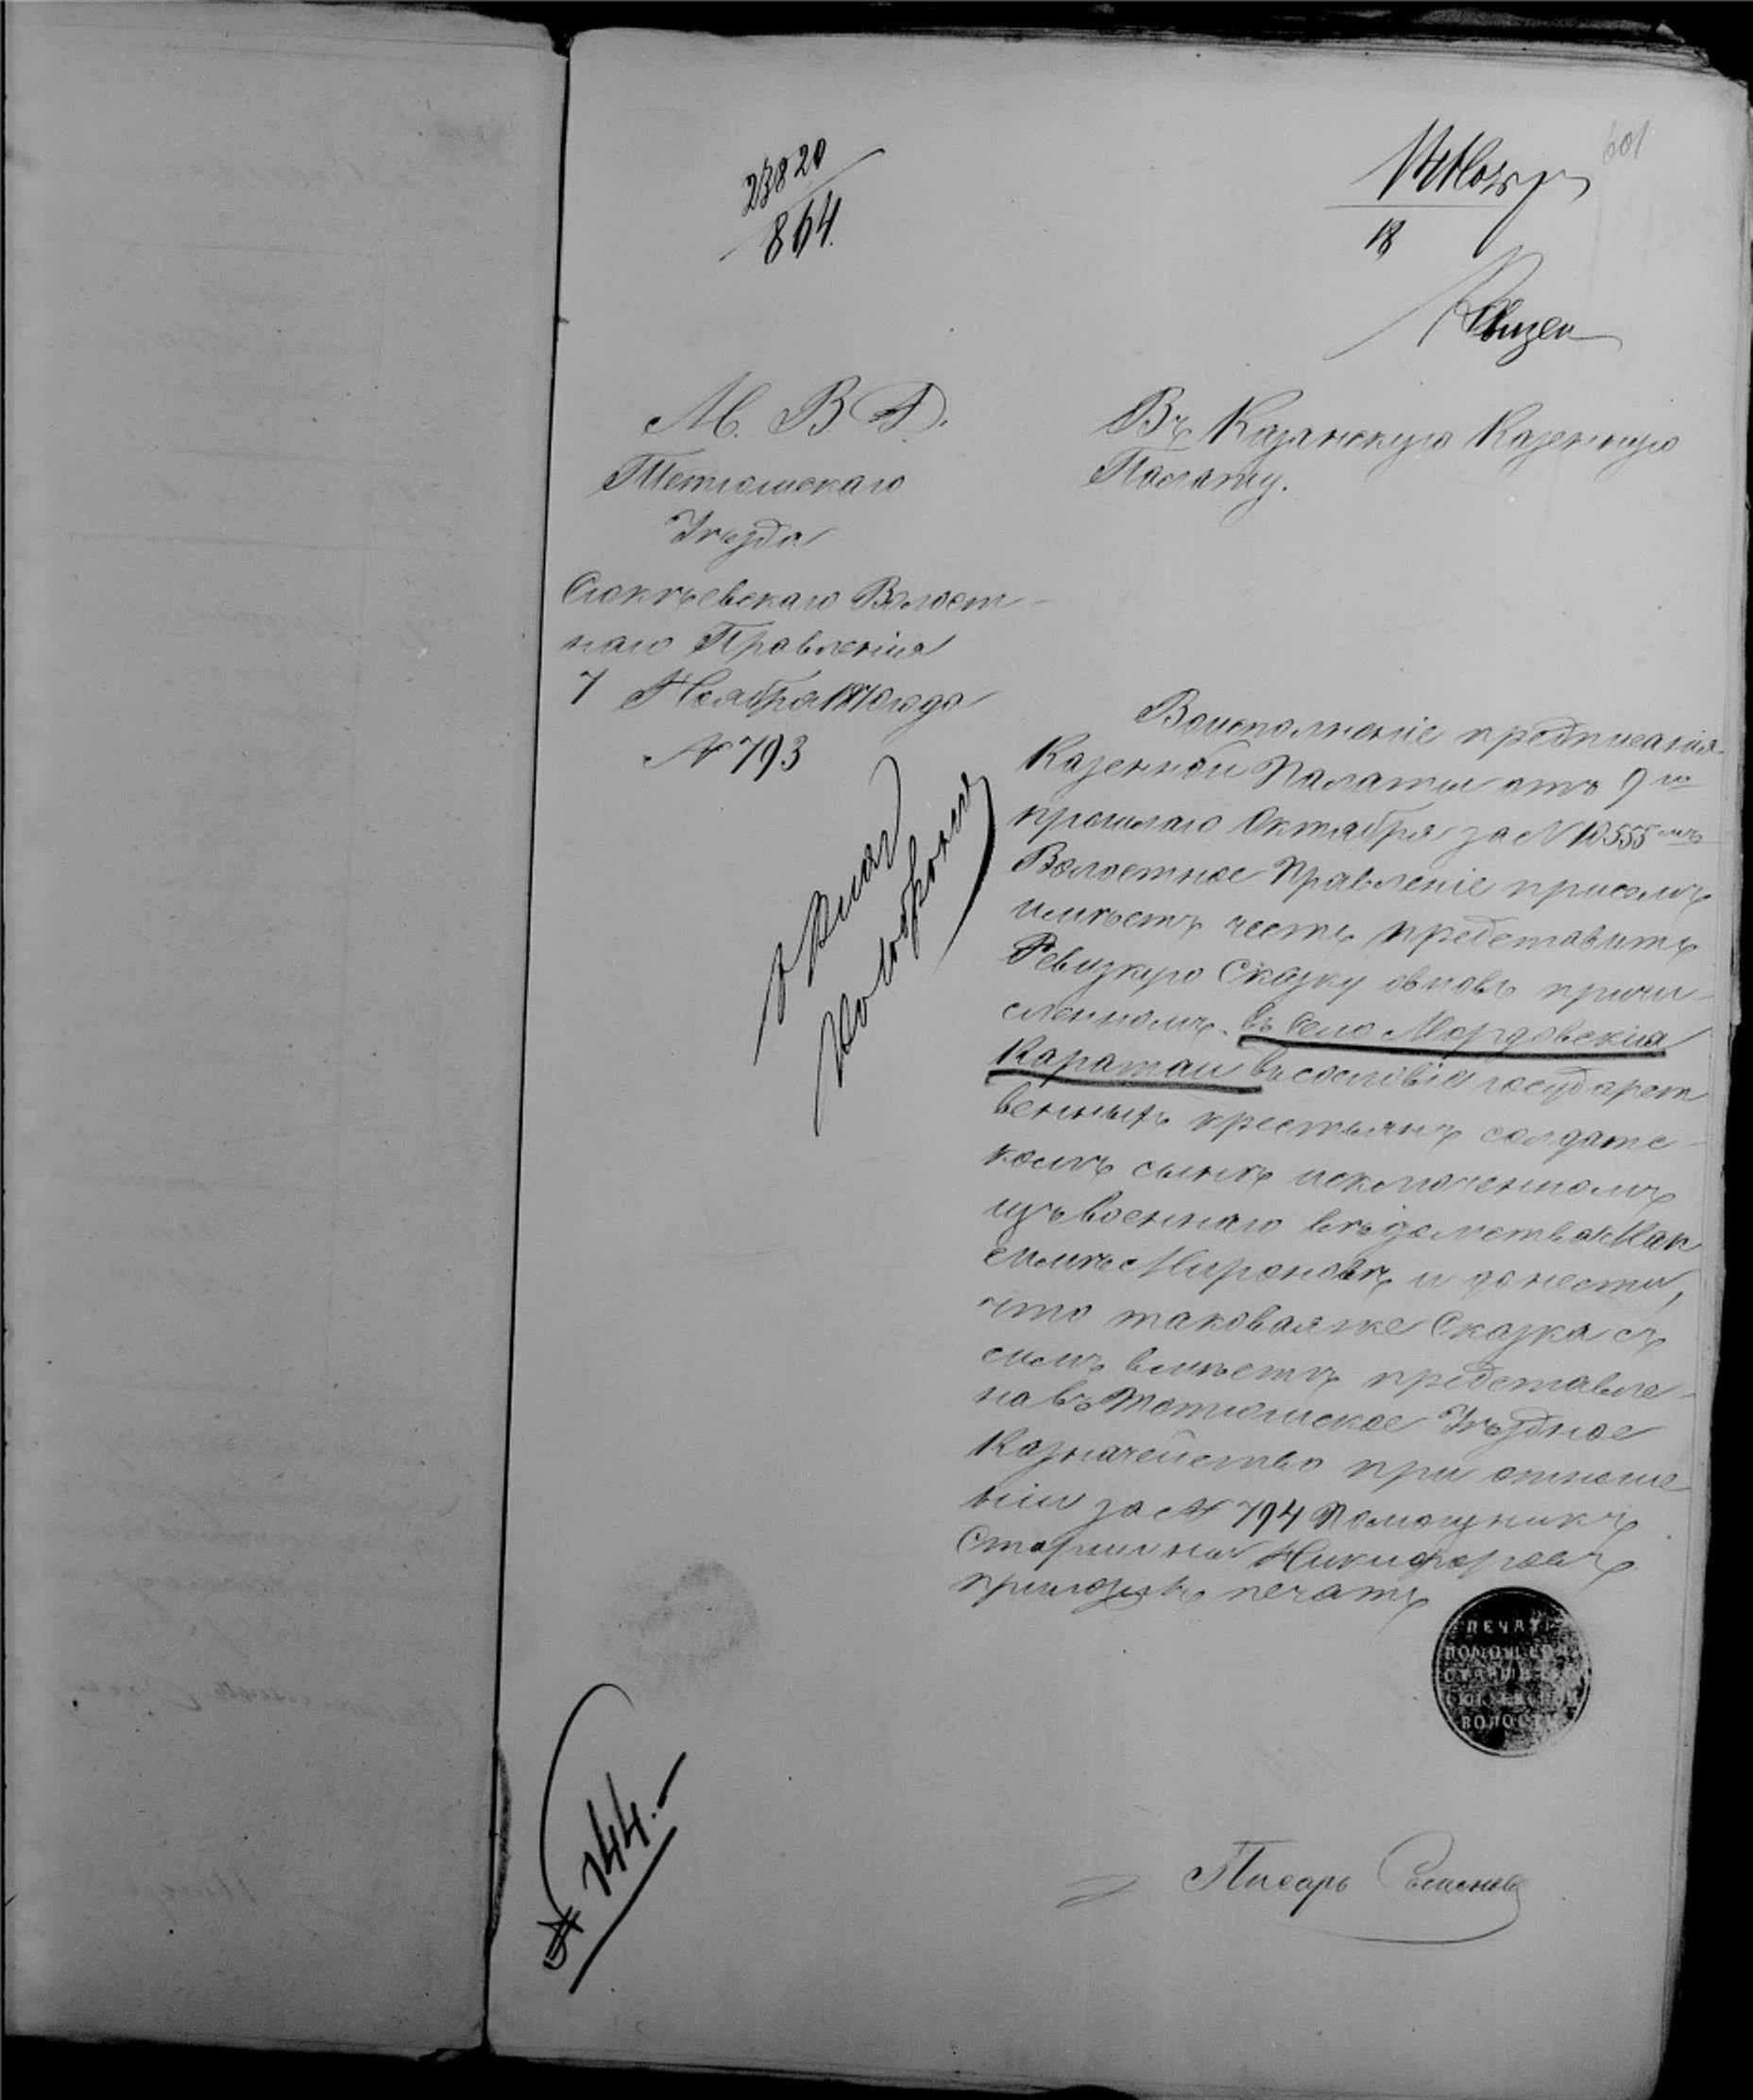 601
23820
864
18
М. В. Д.
Тетюшскаго
Уѣзда
Сюкѣевскаго Волост-
наго Правленія
7 Ноября 1870 года
№ 793
Въ Казанскую Казенную
Палату.
Воисполненіе предписанія
Казенной Палаты отъ 9го
прошлаго Октября за № 10555мъ
Волостное Правленіе присемъ
имѣетъ честь представить
Ревизкую Сказку овновь причи-
сленномъ въ село Мордовскія
Каратаи въ сословіе государст
венныхъ крестьянъ солдатс-
комъ сынѣ исключенномъ
изъ Военнаго вѣдомства Мак
симѣ Мироновѣ и донести,
что таковаяже Сказка съ
симъ вмѣстѣ представле-
на въ Тетюшское Уѣздное
Казначейство при отноше-
ніи за № 794 Помощникъ
Старшины Никифоровъ
приложилъ печать
ПЕЧАТЬ
ПОМОЩНИКА
СТАРШИНЫ
СЮКѢЕВСКОЙ
ВОЛОСТИ
Писарь Семеновъ
№ 144.